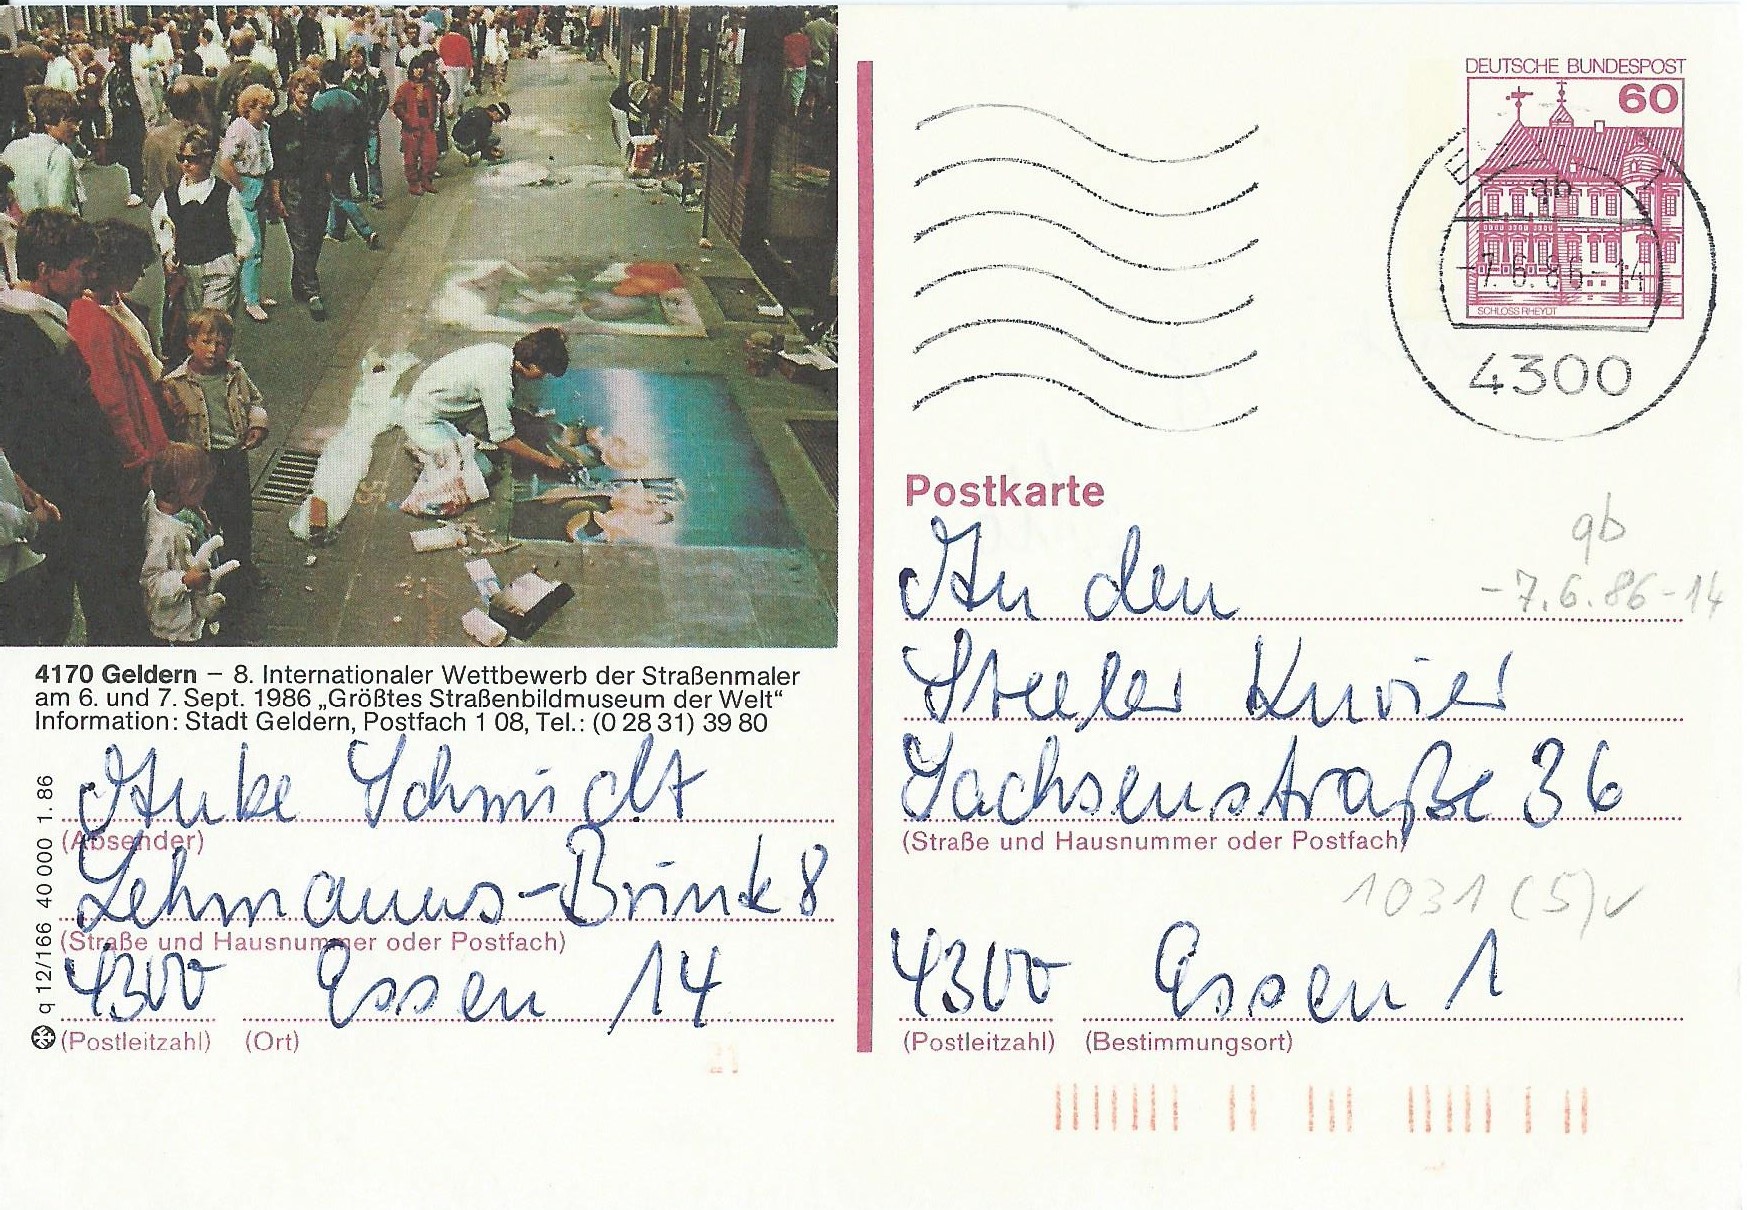 4170 Geldern – 8. Internationaler Wettbewerb der Straßenmaler
am 6. und 7. Sept. 1986 „Größtes Straßenbildmuseum der Welt“
Information: Stadt Geldern, Postfach 1 08, Tel.: (0 28 31) 39 80
Anke Schmidt
(Absender)
Lehmanns-Brink 8
(Straße und Hausnummer oder Postfach)
4300 Essen 14
(Postleitzahl) (Ort)
q 12/166 40 000 1.86
DEUTSCHE BUNDESPOST
60
SCHLOSS RHEYDT
gb
-7.6.86-14
4300
Postkarte
gb
-7.6.86-14
An den
Steeler Kurier
Sachsenstraße 36
(Straße und Hausnummer oder Postfach)
1031 (5)
4300 Essen 1
(Postleitzahl) (Bestimmungsort)